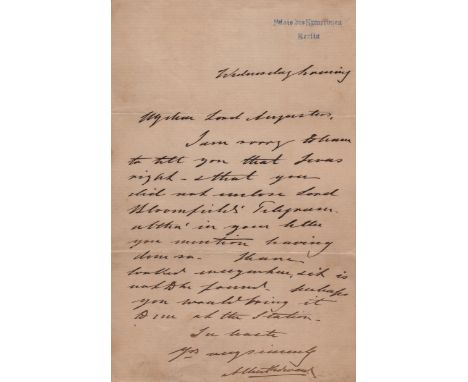 Palais des Kronprinzen
Berlin
Wednesday Evening
My dear Lord Augustus,
I am sorry to have
to tell you that I was
right - & that you
did not enclose Lord
Bloomfield's Telegram
altho' in your letter
you mention having
done so - I have
looked everywhere, & it is
not to be found - perhaps
you would bring it
to me at the Station -
In haste
Yrs very sincerely
Albert Edward